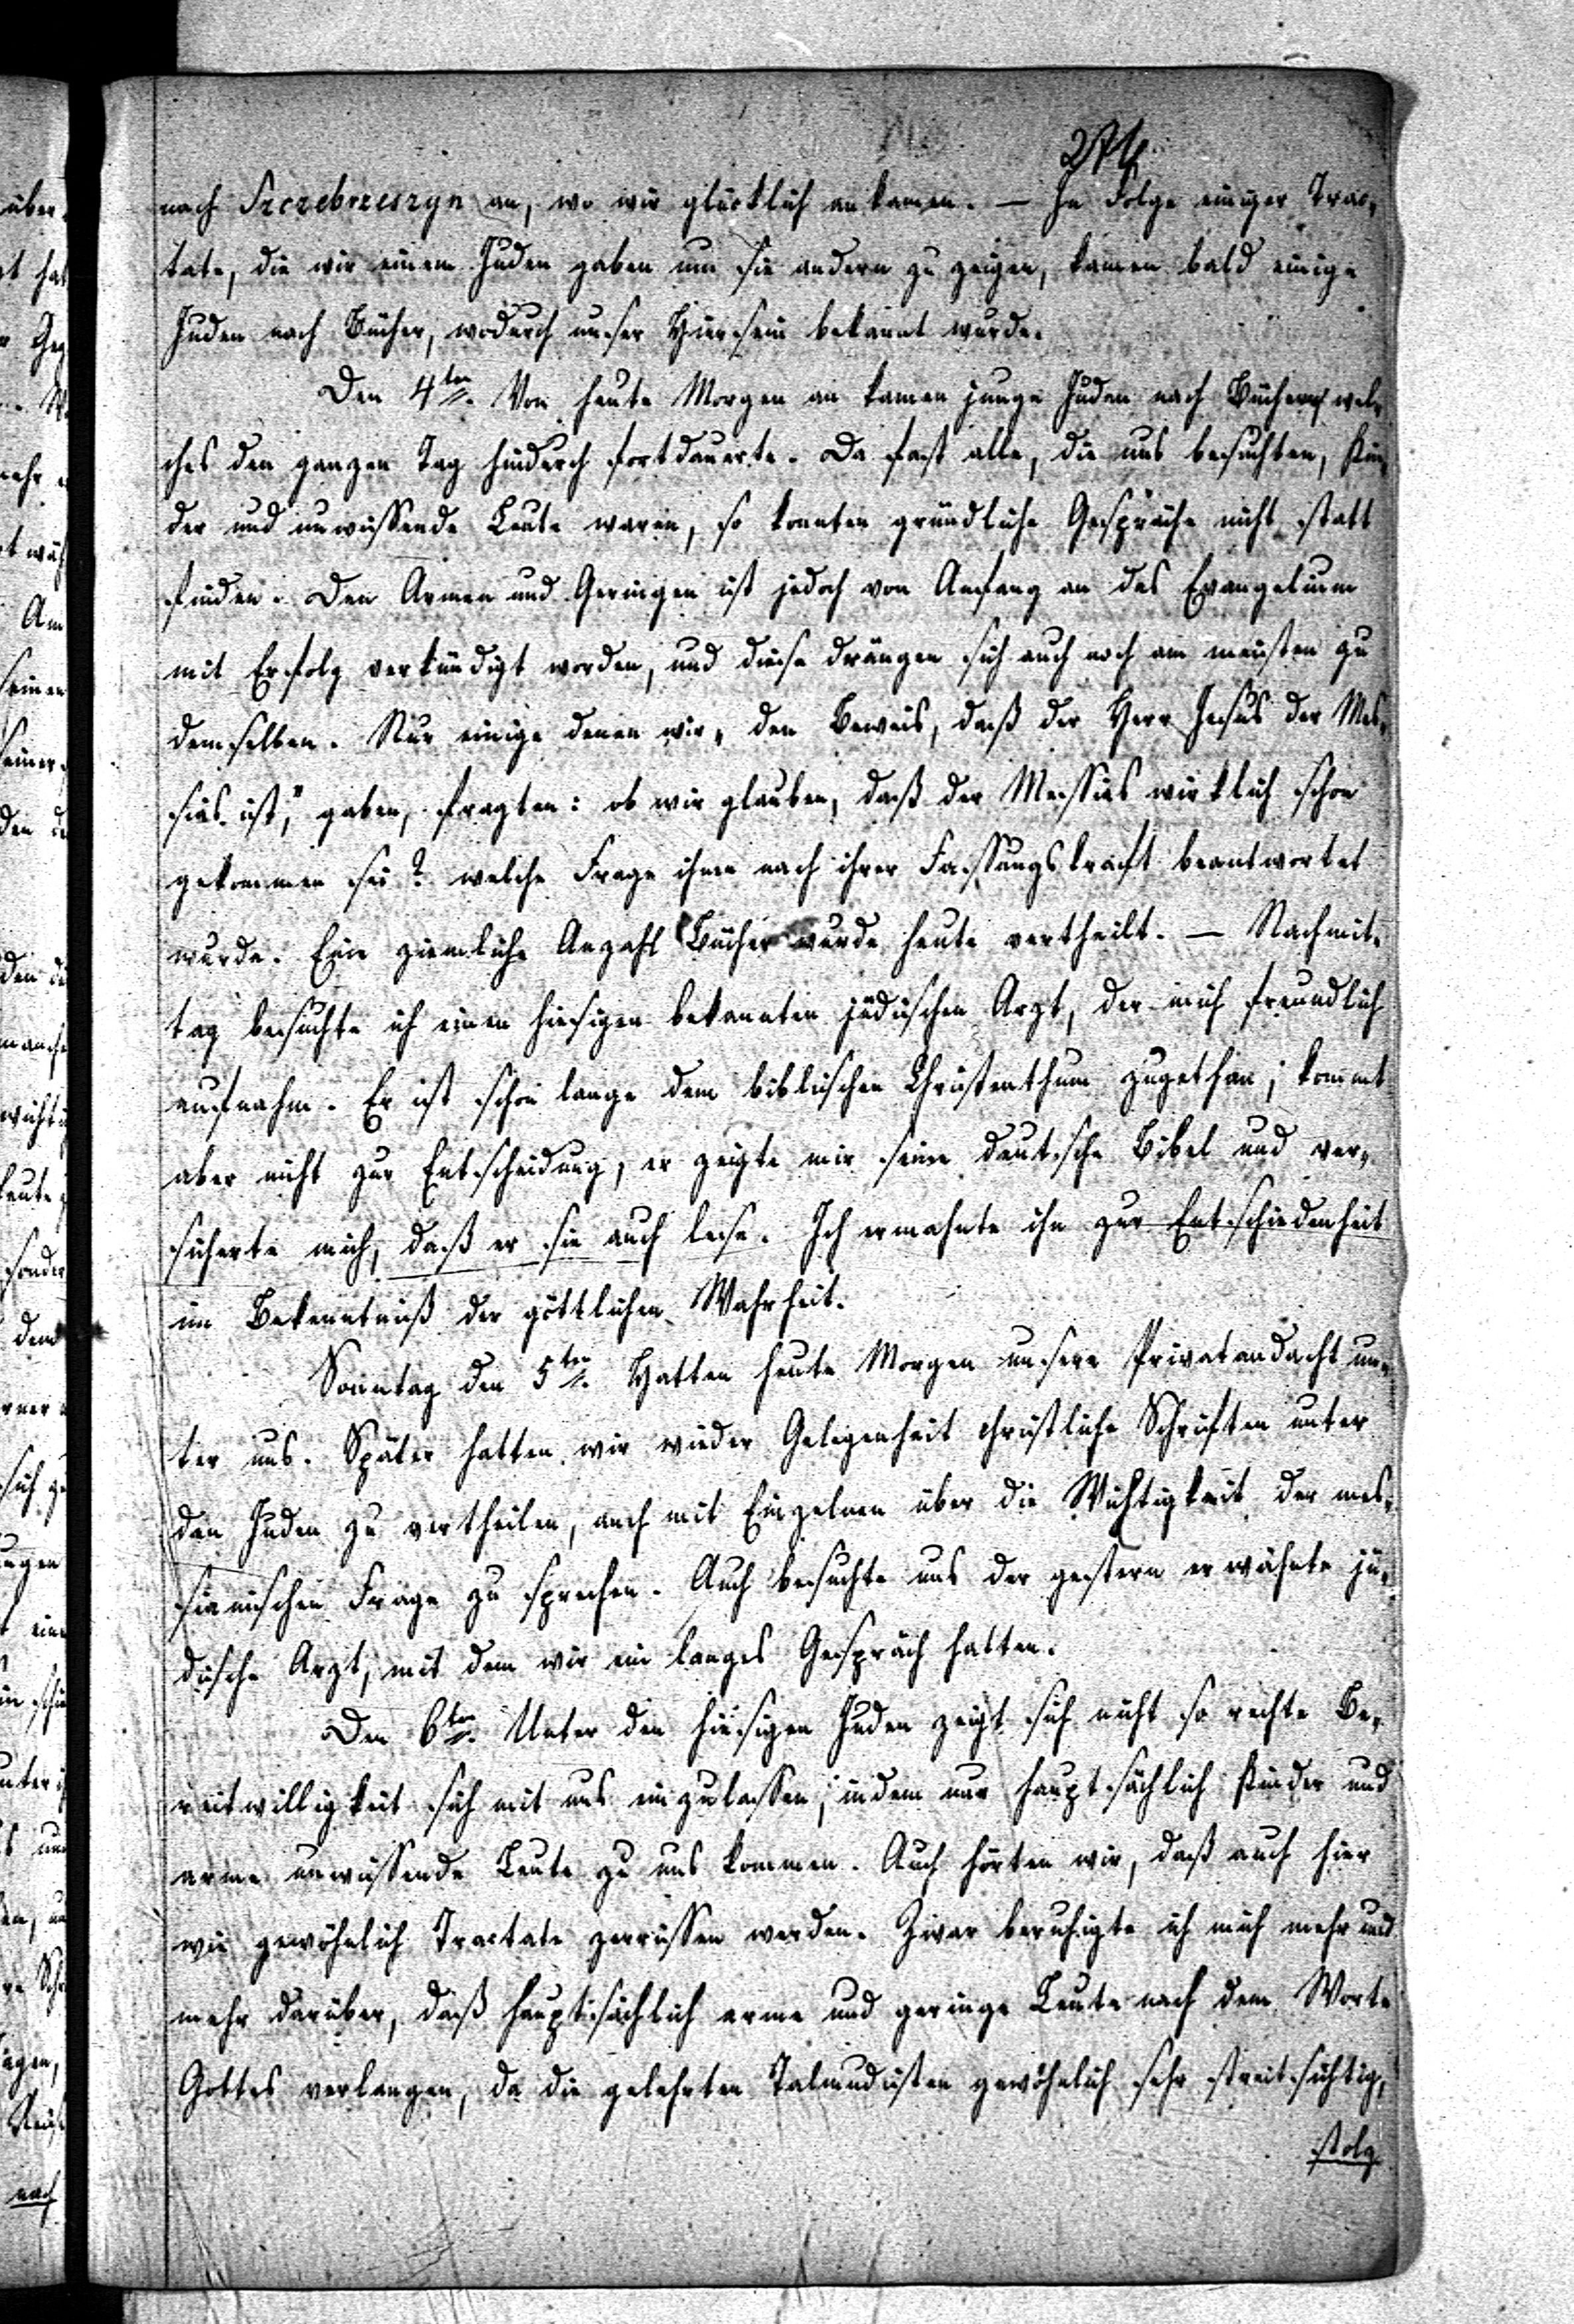 nach Szczebrzeszyn an, wo wir glücklich ankamen. — In Folge einiger Trac-
tate, die wir einem Juden gaben um sie andern zu zeigen, kamen bald einige
Juden nach Bücher, wodurch unser Hiersein bekannt wurde.
Den 4ten. Von heute Morgen an kamen junge Juden nach Büchern wel-
ches den ganzen Tag hindurch fortdauerte. Da fast alle, die uns besuchten, Kin-
der und unwissende Leute waren, so konnten gründliche Gespräche nicht statt
finden. Den Armen und Geringen ist jedoch von Anfang an das Evangelium
mit Erfolg verkündigt worden, und diese drängen sich auch noch am meisten zu
demselben. Nur einige denen wir „den Beweis, daß der Herr Jesus der Mes-
sias ist," gaben, fragten: ob wir glauben, daß der Messias wirklich schon
gekommen sei? welche Frage ihnen nach ihrer Fassungskraft beantwortet
wurde. Eine ziemliche Anzahl Bücher wurde heute vertheilt. — Nachmit-
tag besuchte ich einen hiesigen bekannten jüdischen Arzt, der mich freundlich
aufnahm. Er ist schon lange dem biblischen Christenthum zugethan; kommt
aber nicht zur Entscheidung, er zeigte mir seine deutsche Bibel und ver-
sicherte mich, daß er sie auch lese. Ich ermahnte ihn zur Entschiedenheit
im Bekenntniß der göttlichen Wahrheit.
Sonntag den 5ten. Hatten heute Morgen unsere Privatandacht un-
ter uns. Später hatten wir wieder Gelegenheit christliche Schriften unter
den Juden zu vertheilen, auch mit Einzelnen über die Wichtigkeit der mes-
sianischen Frage zu sprechen. Auch besuchte uns der gestern erwähnte jü-
dische Arzt, mit dem wir ein langes Gespräch hatten.
Den 6ten. Unter den hiesigen Juden zeigt sich nicht so rechte Be-
reitwilligkeit sich mit uns einzulassen, indem nur hauptsächlich Kinder und
arme unwissende Leute zu uns kommen. Auch hörten wir, daß auch hier
wie gewöhnlich Tractate zerrissen werden. Zwar beruhigte ich mich mehr und
mehr darüber, daß hauptsächlich arme und geringe Leute nach dem Worte
Gottes verlangen, da die gelehrten Talmudisten gewöhnlich sehr streitsüchtig,
stolz